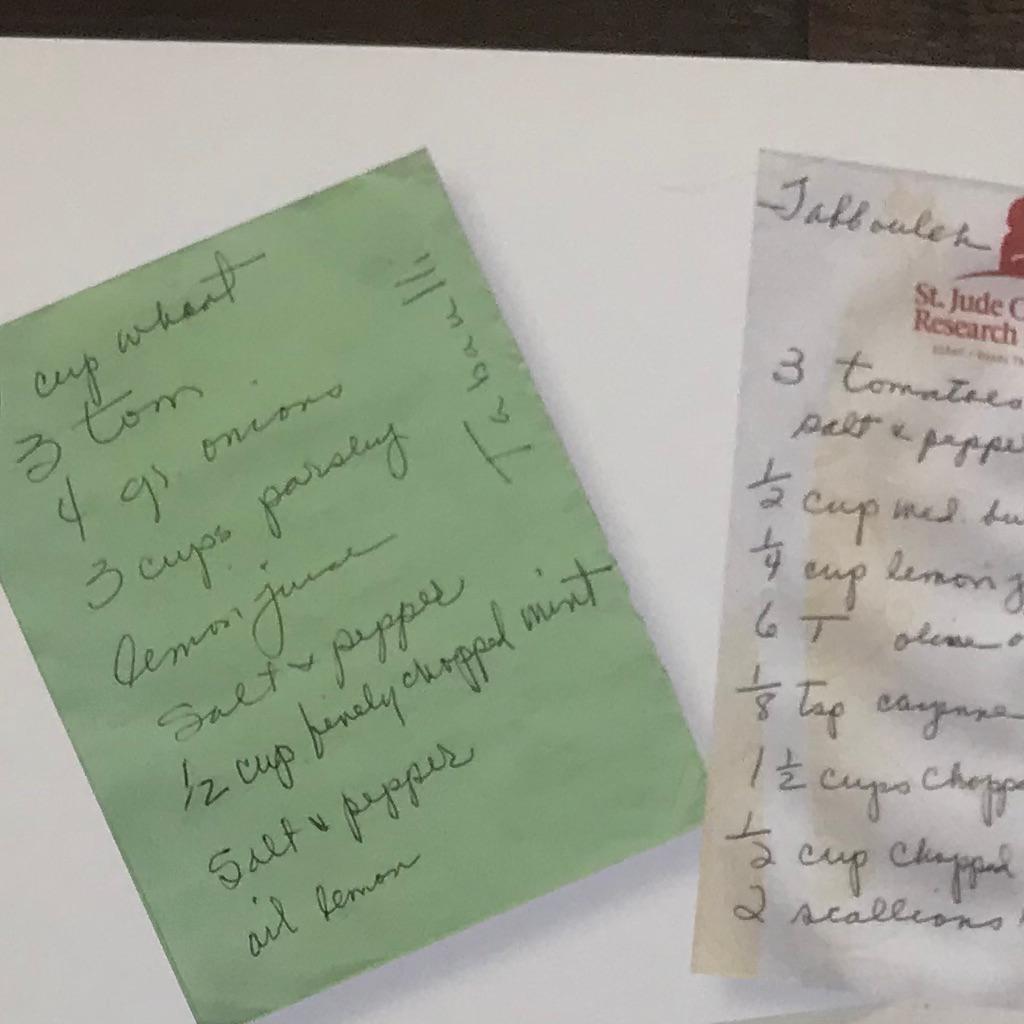 cup wheat
3 tom
4 gr onions
3 cups parsley
lemon juice
Salt & pepper
1/2 cup finely chopped mint
Salt & pepper
oil lemon
Tabbouleh
St. Jude C
Research
3 tomatoes
salt & peppe
1/2 cup med. bu
1/4 cup lemon j
6 T olive o
1/8 Tsp cayenne
1 1/2 cups chopp
1/2 cup chopped
2 scallions